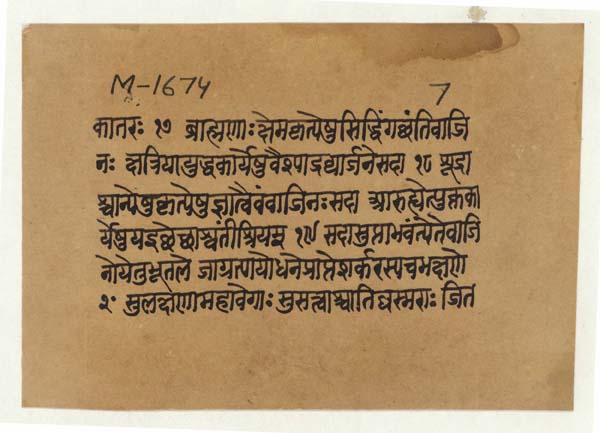 M-1674
7
कातरः १७ ब्राह्मणाः क्षेमकृत्येषु सिद्धिं गच्छंति वाजि
नः क्षत्रिया युद्धकार्येषु वैश्या द्रव्यार्जने सदा १८ शूद्रा
श्चान्येषु कृत्येषु ज्ञात्वैवं वाजिनः सदा आरुह्येत्पुक्तका
र्येषु यइछेछाश्वतीं श्रियं १९ सदा सुप्ता भवंत्येते वाजि
नो ये तु भूतले जाग्रत्ययोधने प्राप्ते शर्करस्य च भक्षणे
२॰ सुलक्षणा महावेगाः सुसत्वाश्चातिघस्मराः जित